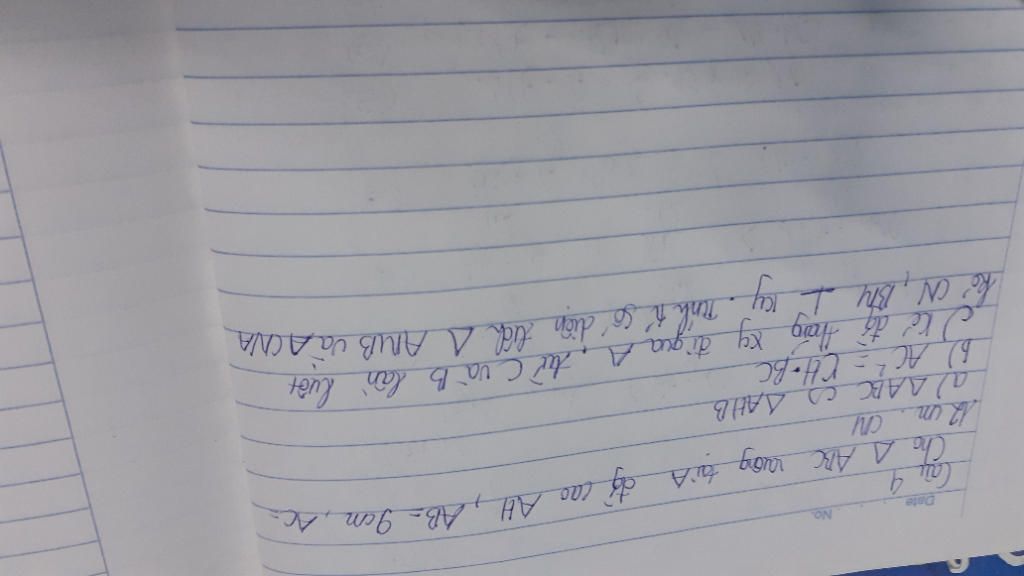 Date
No.
Câu 4
Cho Δ ABC vuông tại A đg cao AH, AB = 9cm, AC =
12 cm. CM
a) Δ ABC ∽ Δ AHB
b) AC² = CH.BC
c) Kẻ đg thẳng xy đi qua A, từ C và B lần lượt
Kẻ CN, BM ⊥ xy. Tính tỉ số diện tích Δ AMB và Δ CNA